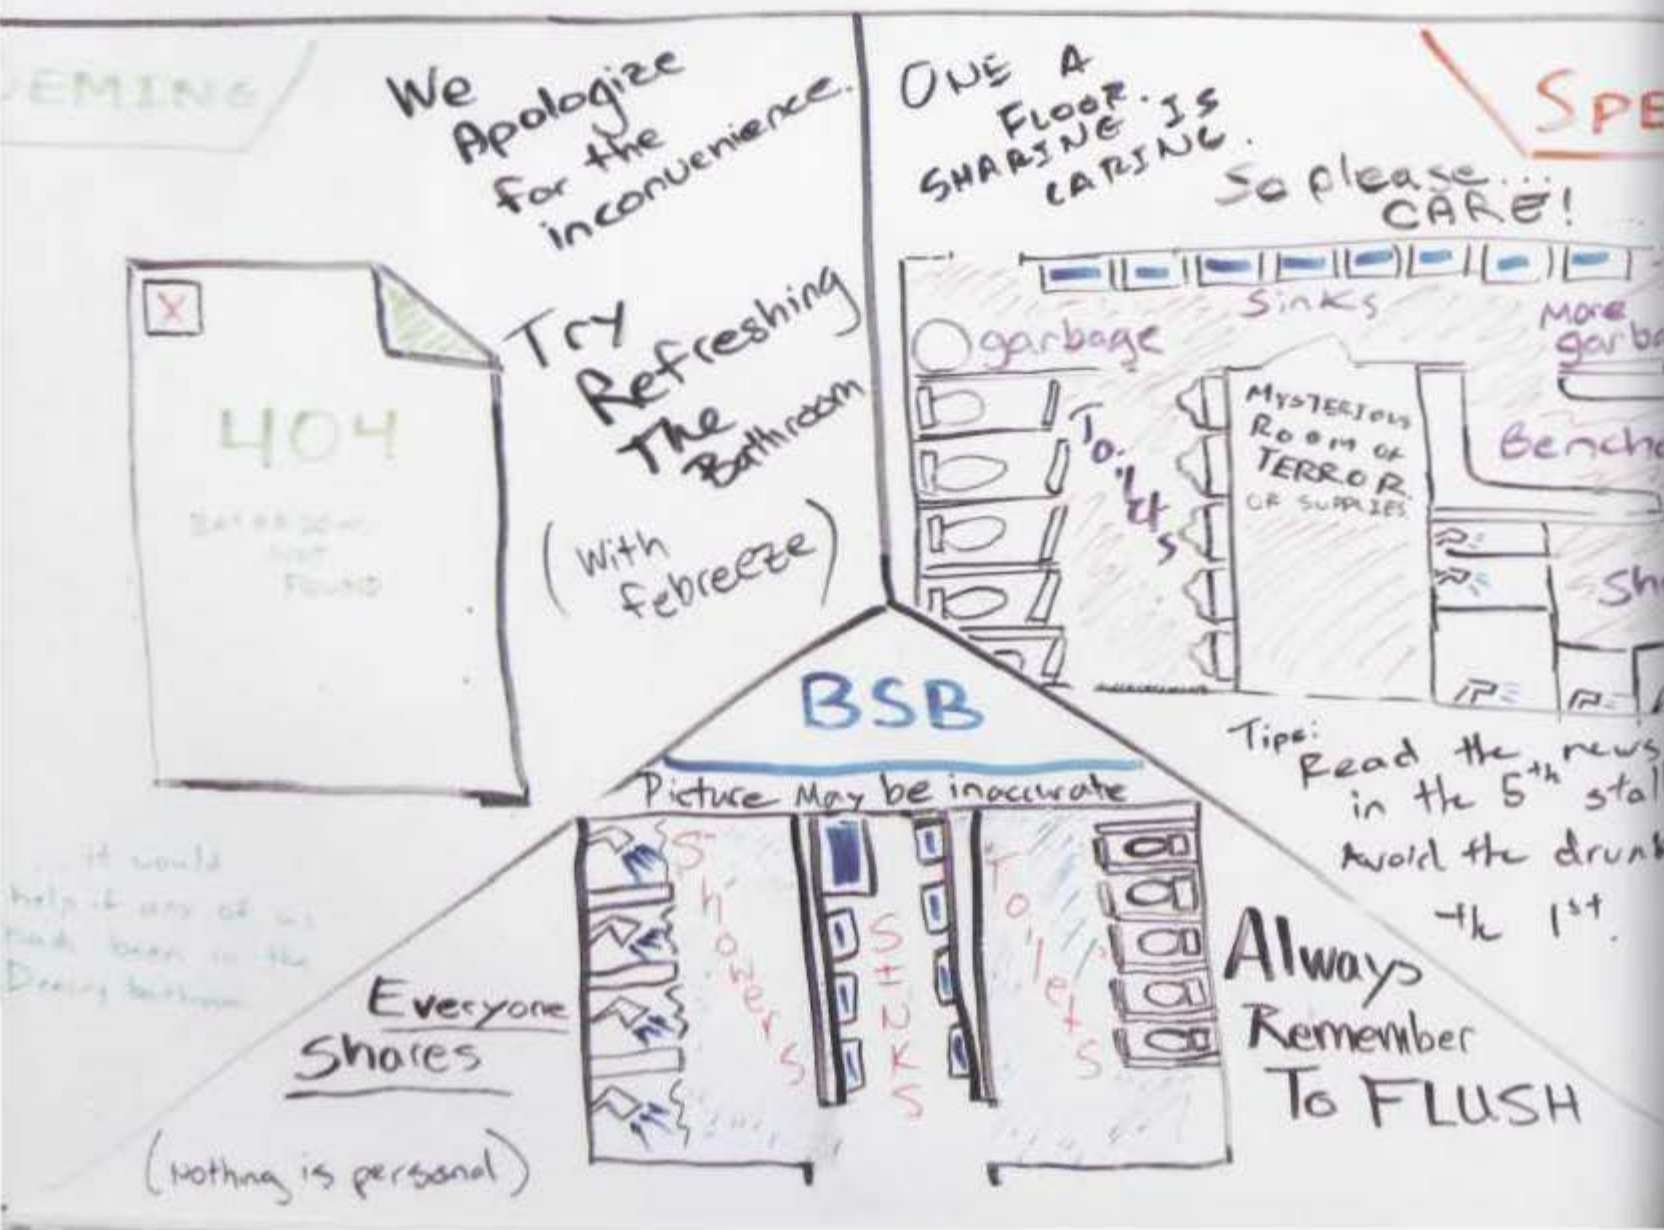 EMING
We
Apologize
for the
inconvenience.
X
404
BATHROOM
NOT
FOUND
Try
Refreshing
The
Bathroom
(with
febreeze)
... it would
help if any of us
had been in the
Deming bathroom
ONE A
FLOOR.
SHARING IS
CARING.
So please...
CARE!
SPE
Sinks
garbage
More
garba
Toilets
MYSTERIOUS
ROOM OF
TERROR
OR SUPPLIES
Benche
Sh
Tips:
Read the news
in the 5th stall
Avoid the drunk
the 1st.
BSB
Picture May be inaccurate
Showers
SINKS
Toilets
Everyone
Shares
(Nothing is personal)
Always
Remember
To FLUSH